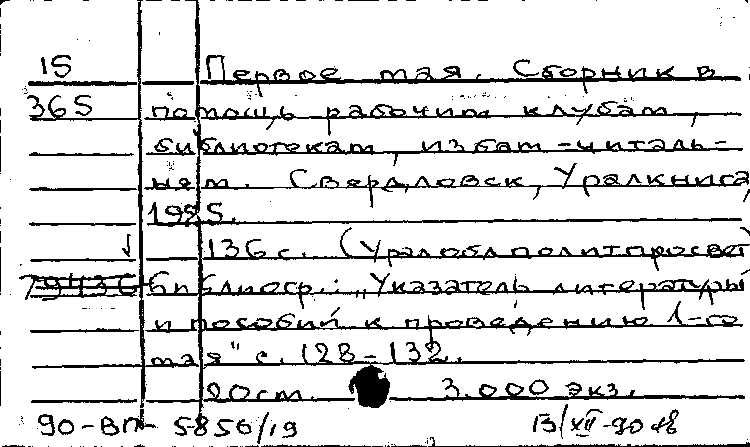 15 Первое мая. Сборник в
365 помощь рабочим клубам,
библиотекам, избам-читаль-
ням. Свердловск, Уралкнига,
1925.
136 с. (Уралоблполитпросвет)
79436 Библиогр.: „Указатель литературы
и пособий к проведению 1-го
мая" с. 128-132.
20 см. 3.000 экз.
90-ВП- 5856/19 13/XII-90